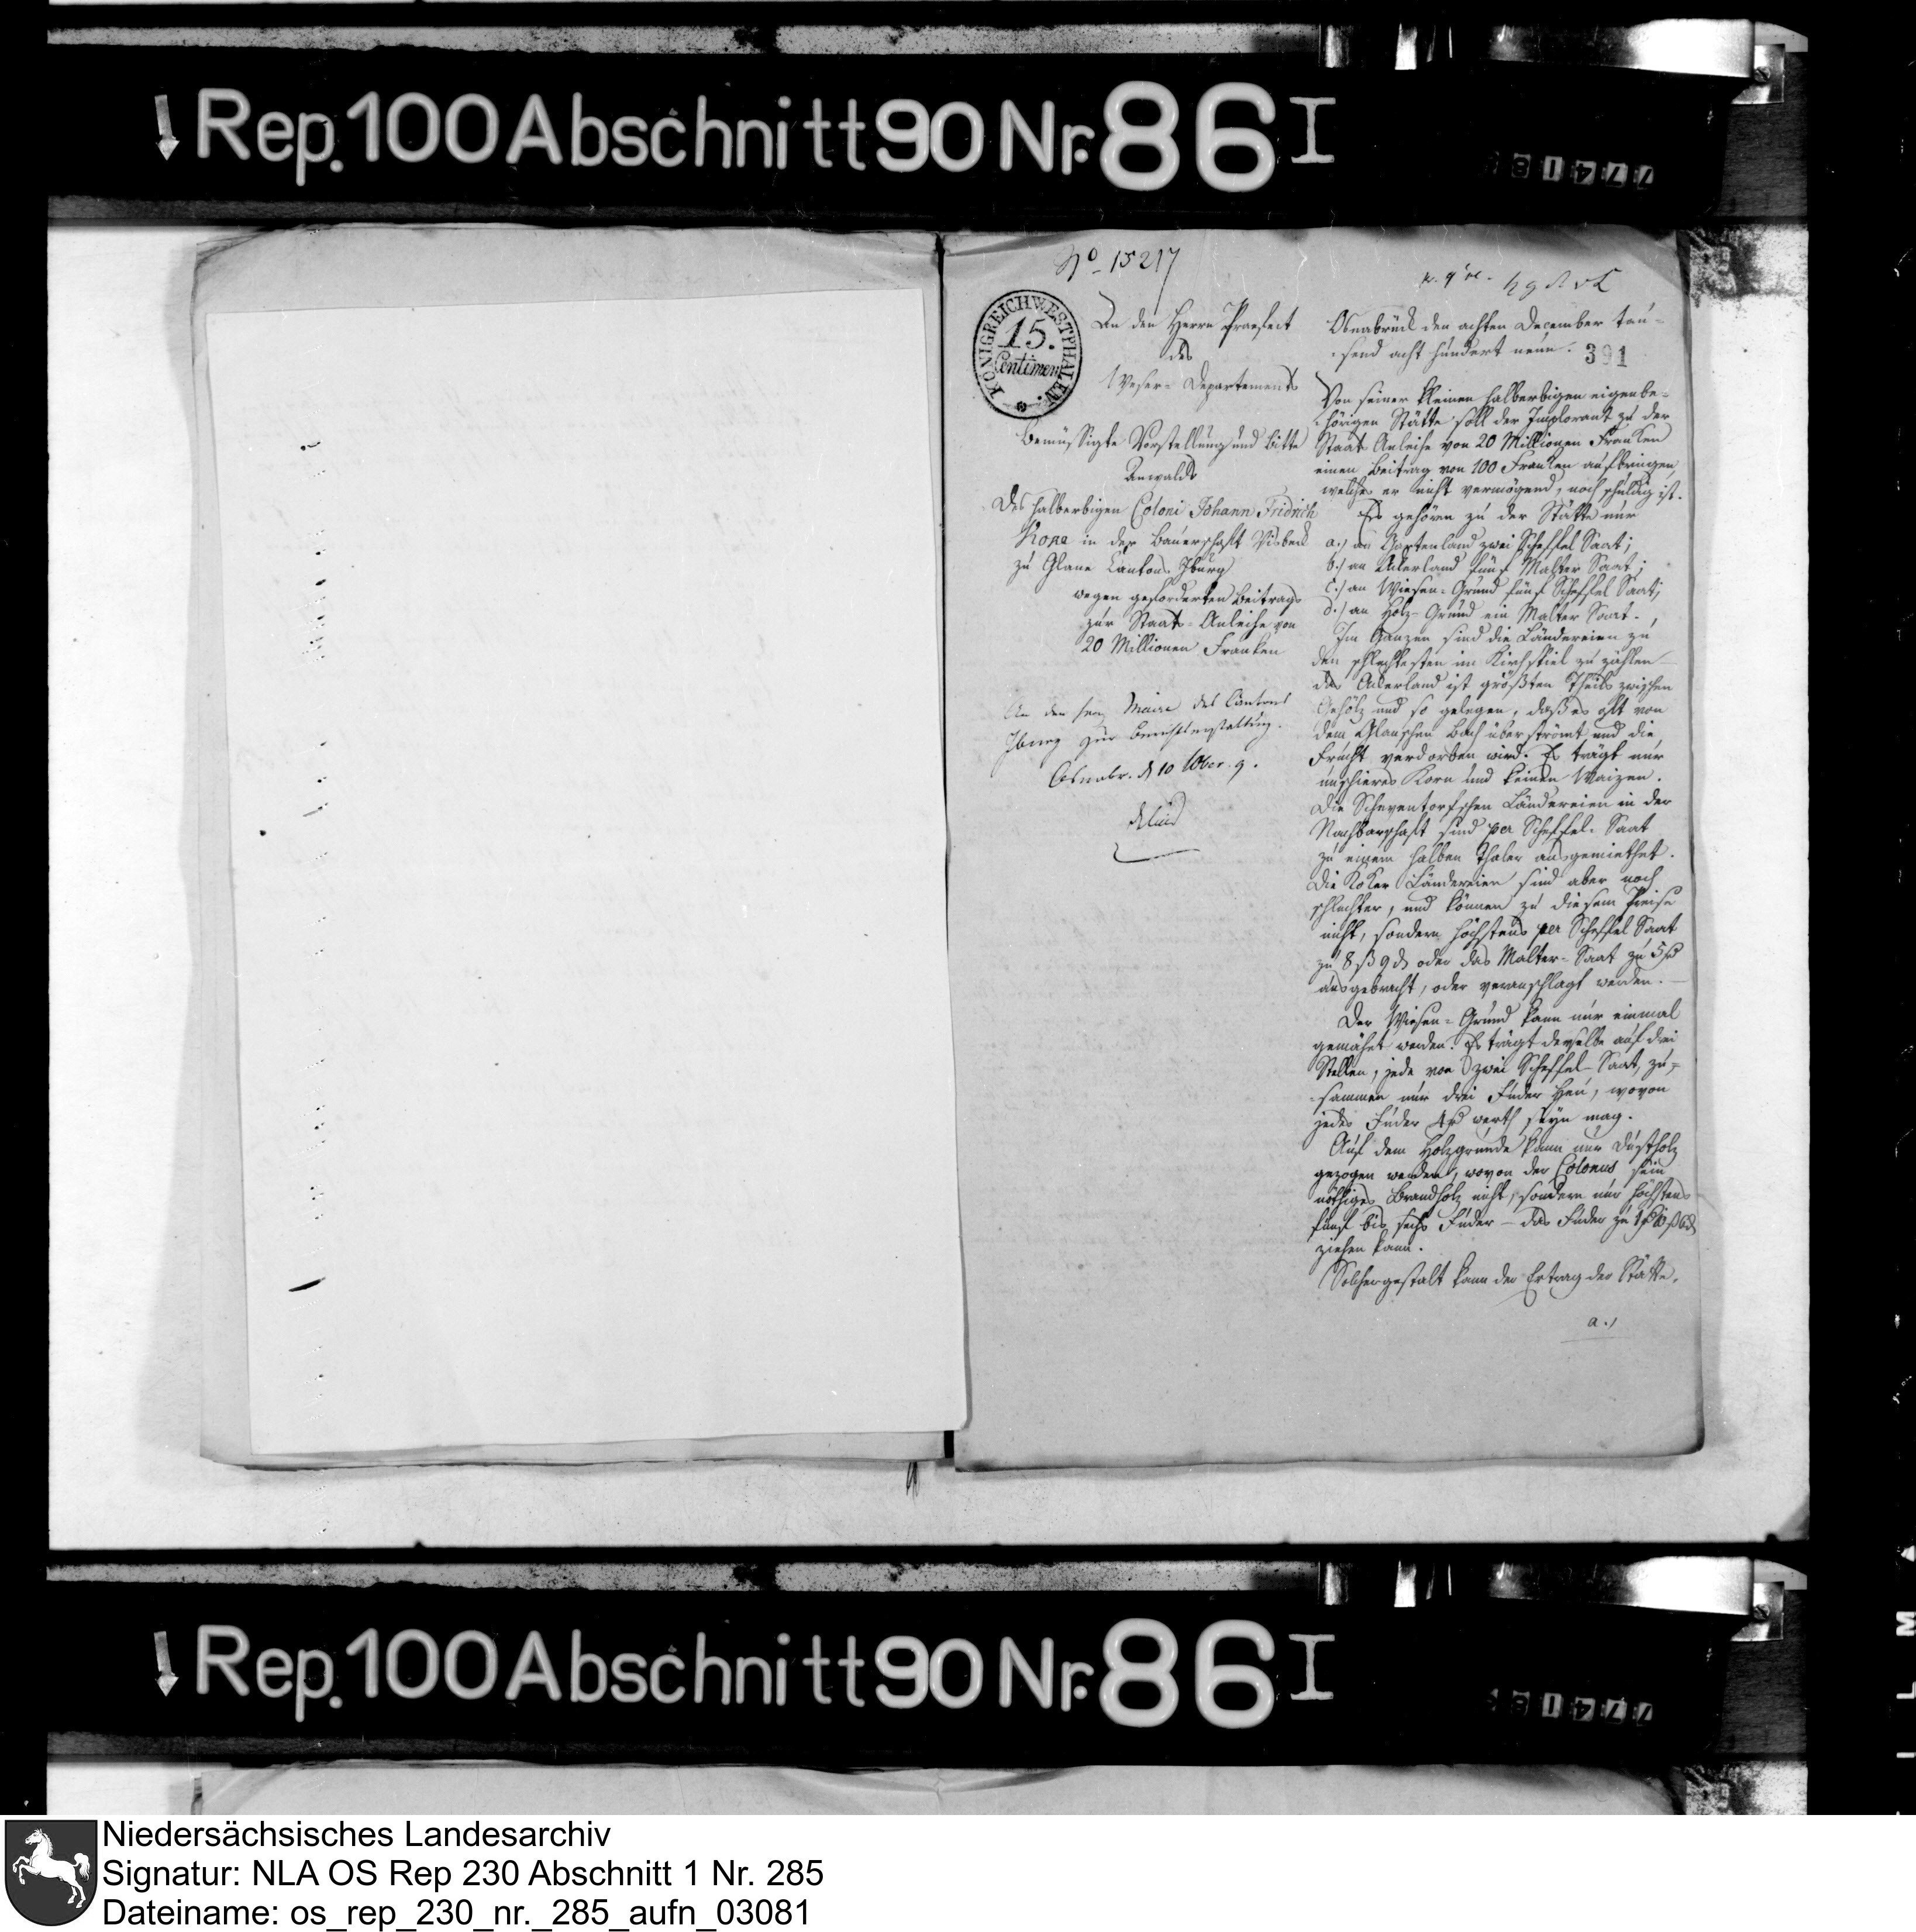 Rep. 100 Abschnitt 90 Nr. 86 I
77418
No 15217
KÖNIGREICH WESTPHALEN.
15.
Centimen
An den Herrn Praefect
des
Weser-Departements
Bemüssigte Vorstellung und Bitte
Anwalds
des halberbigen Coloni Johann Fridrich
in der Bauerschaft Visbeck
zu Glane Cantons Iburg
wegen geforderten Beitrags
zur Staats-Anleihe von
20 Millionen Franken
An den Herrn Maire des Cantons
Iburg zur Berichtserstattung.
Osnabr. d 10 Xber. 9.
Osnabrück den achten December tau-
send acht hundert neun.
391
Von seiner kleinen halberbigen eigenbe-
hörigen Stätte soll der Implorant zu der
Staats Anleihe von 20 Millionen Franken
einen Beitrag von 100 Franken aufbringen,
welches er nicht vermögend, noch schuldig ist.
Es gehören zu der Stätte nur
a.) an Gartenland zwei Scheffel Saat;
b.) an Ackerland fünf Malter Saat;
c.) an Wiesen-Grund fünf Scheffel Saat;
d.) an Holz-Grund ein Malter Saat.
Im Ganzen sind die Ländereien zu
den schlechtesten im Kirchspiel zu zählen
das Ackerland ist größten Theils zwischen
Gehölz und so gelegen, daß es oft von
dem Glanschen Bach überströmt und die
Frucht verdorben wird. Es trägt nur
Korn und keinen Waizen.
Die Scheventorfschen Ländereien in der
Nachbarschaft sind per Scheffel-Saat
zu einem halben Thaler ausgemiethet.
Die Ländereien sind aber noch
schlechter, und können zu diesem Preise
nicht, sondern höchstens per Scheffel Saat
zu 8 ß 9 d oder das Malter-Saat zu 5
ausgebracht, oder veranschlagt werden.
Der Wiesen-Grund kann nur einmal
gemähet werden. Es trägt derselbe auf drei
Stellen, jede von zwei Scheffel-Saat, zu-
sammen nur drei Fuder Heu, wovon
jedes Fuder 4 werth seyn mag.
Auf dem Holzgrunde kann nur Dustholz
gezogen werden, wovon der Colonus sein
nöthiges Brandholz nicht, sondern nur höchstens
fünf bis sechs Fuder – das Fuder zu
ziehen kann.
Solchergestalt kann der Ertrag der Stätte,
a.)
Rep. 100 Abschnitt 90 Nr. 86 I
77418
Niedersächsisches Landesarchiv
Signatur: NLA OS Rep 230 Abschnitt 1 Nr. 285
Dateiname: os_rep_230_nr._285_aufn_03081